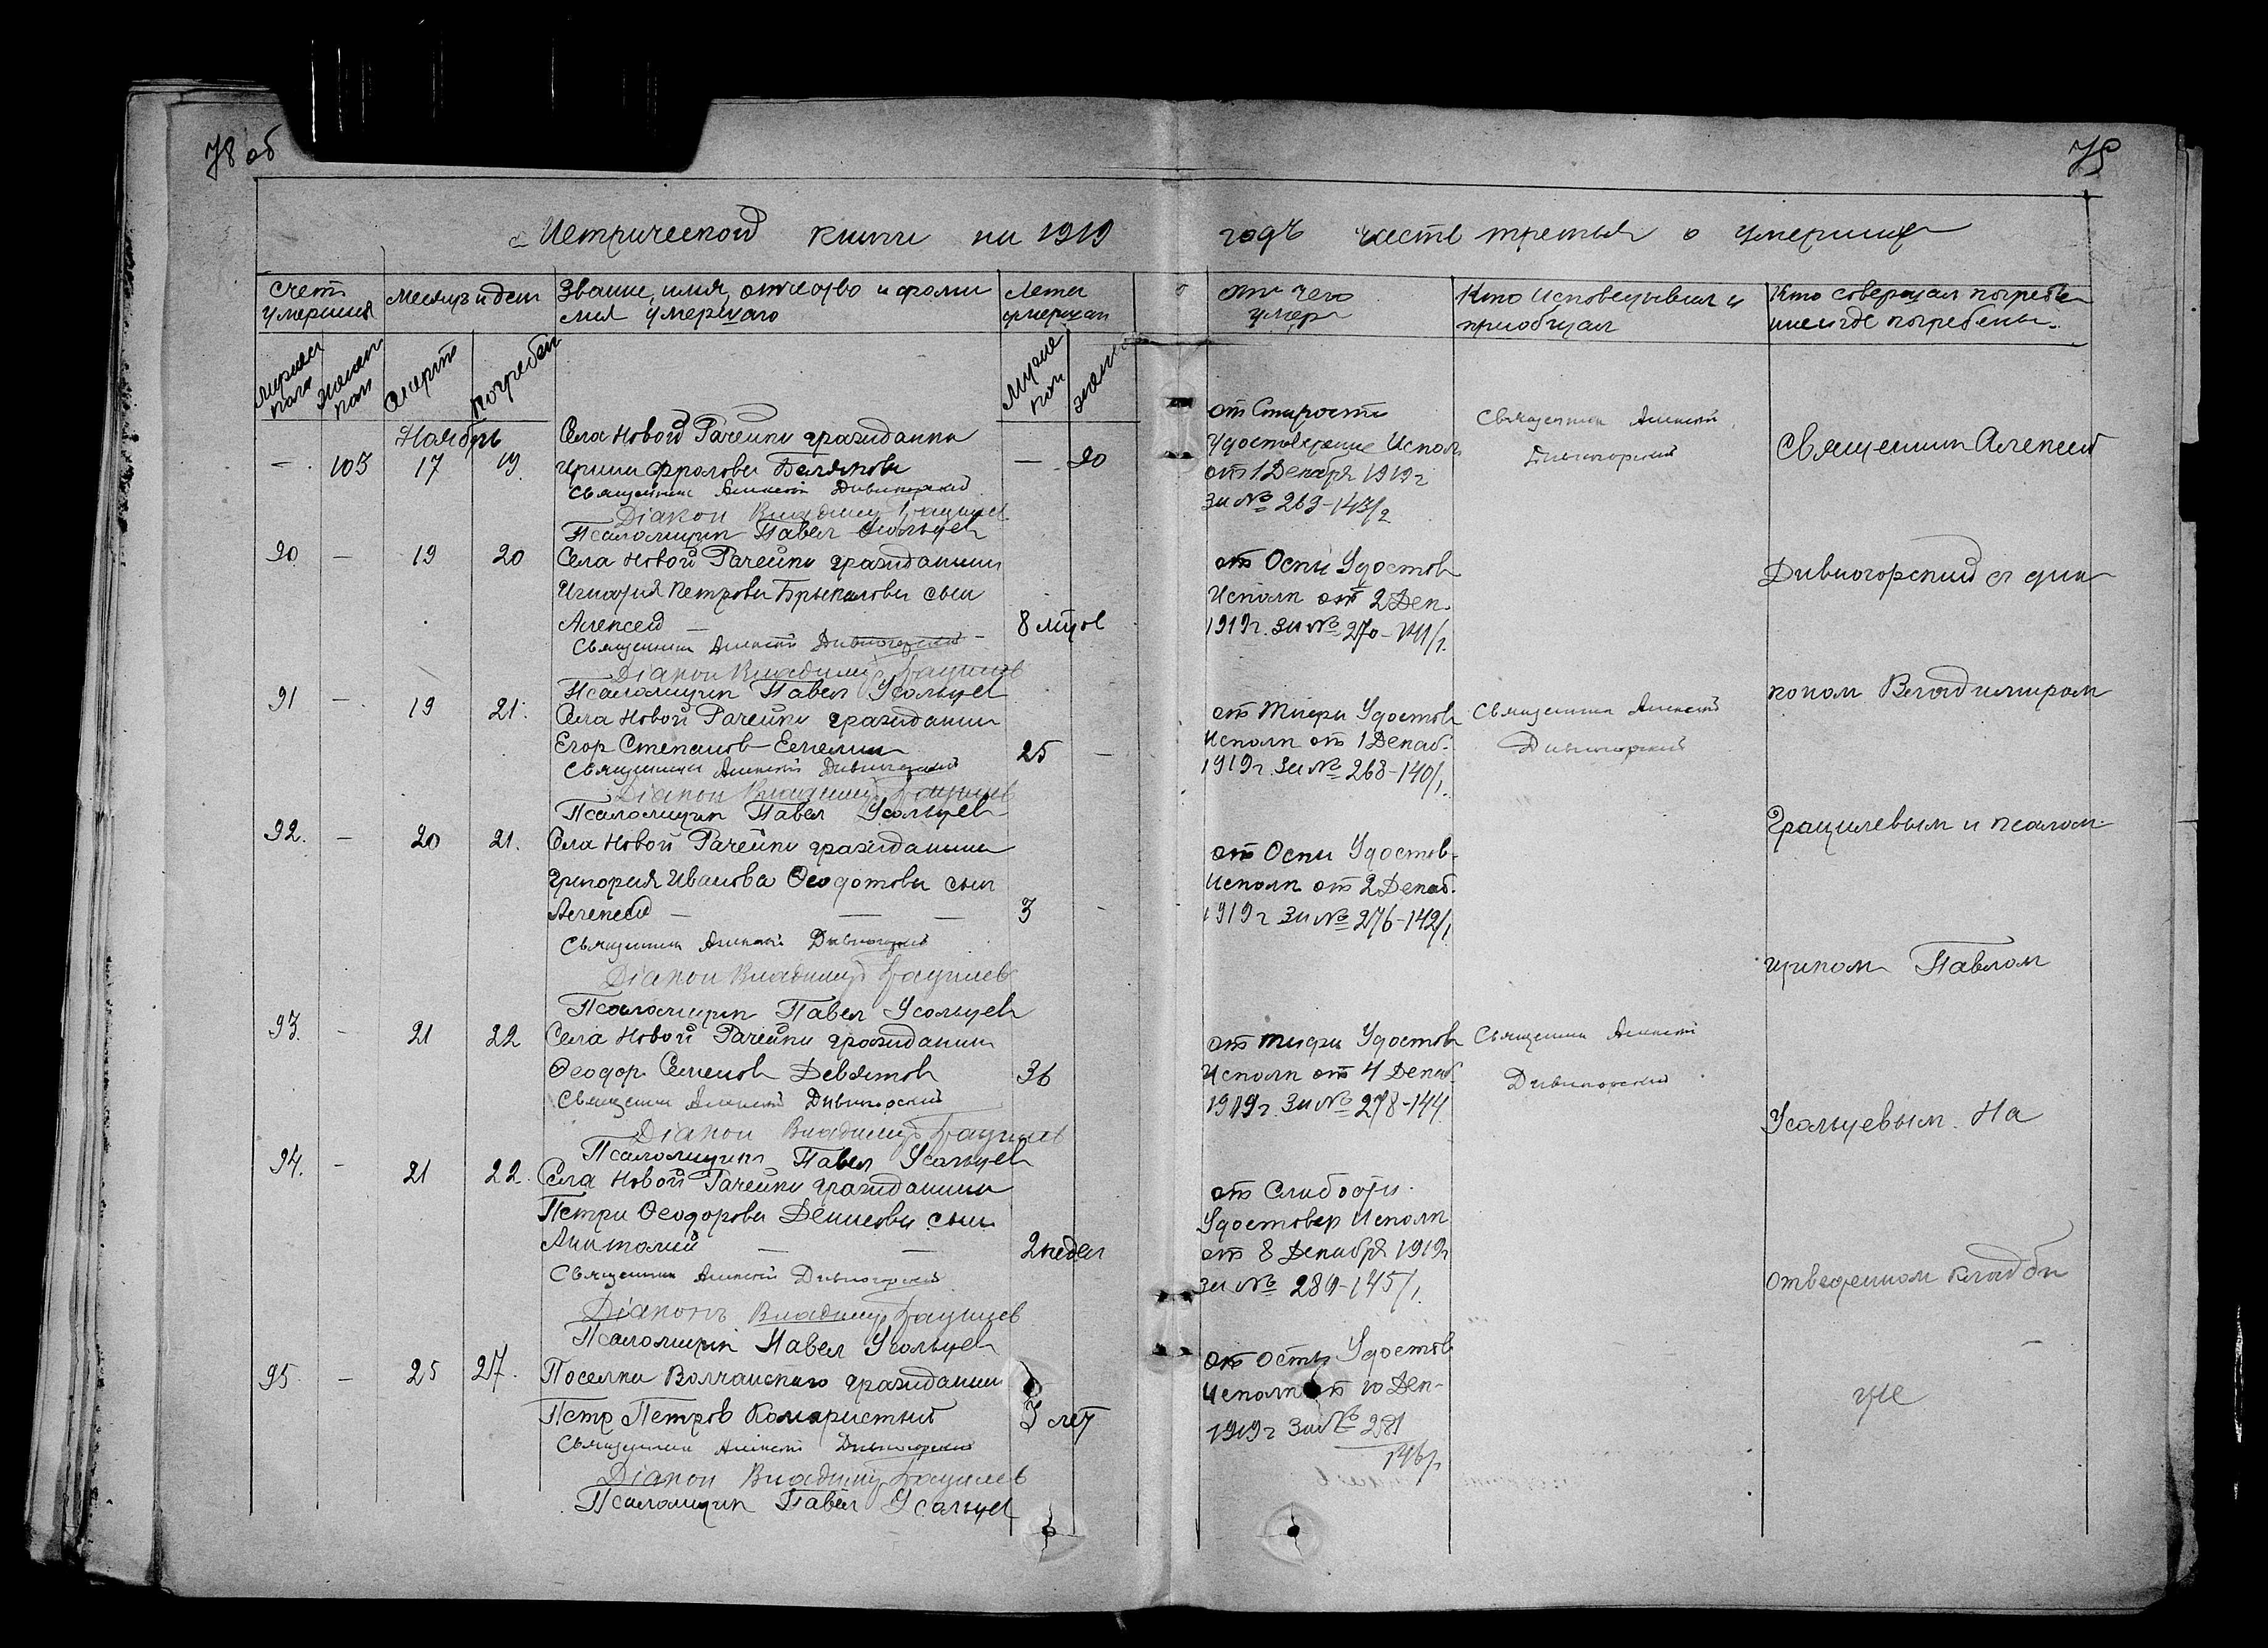 78 об
79
Метрической книги на 1919
годъ часть третья о умерших
Счет умерших
Месяц и ден
Звание, имя, отчество и фами
лия умершаго
Лета умерших
Мужеск пола
Женск пол
Смерти
Погребен
Муже пол
женс
от чего
умер
Кто исповедывал и
приобщал
Кто совершал погребе
ние и где погребены.
Ноябрь
— 103 17 19
Села Новой Рачейки гражданка
Ирина Фролова Белякова — 90
Священник Алексей Дивногорский
Діакон Владимир Грацилев
Псаломщик Павел Усольцев
от Старости
Удостоверение Испол
от 1 Декабря 1919 г
за № 269-143/2
Священник Алексей
Дивногорский
90 — 19 20
Села Новой Рачейки гражданин
Игнатия Петрова Брыкалова сын
Алексей — 8 мцов
Священник Алексей Дивногорский
Діакон Владимир Грацилев
Псаломщик Павел Усольцев
от Оспы Удостов
Исполк от 2 Дек.
1919 г. за № 270-141/1.
91 — 19 21.
Села Новой Рачейки гражданин
Егор Степанов Емелин 25 —
Священник Алексей Дивногорский
Діакон Владимир Грацилев
Псаломщик Павел Усольцев
от Тифа Удостов
Исполк от 1 Декаб.
1919 г. за № 268-140/1.
Священник Алексей
Дивногорский
92. — 20 21.
Села Новой Рачейки гражданина
Григория Иванова Феодотова сын
Алексей — — — 3 -
Священник Алексей Дивногорский
Діакон Владимир Грацилев
Псаломщик Павел Усольцев
от Оспы Удостов-
Исполк от 2 Декаб.
1919 г за № 276-142/1.
93. — 21 22
Села Новой Рачейки гражданин
Феодор Семенов Девятов 36
Священник Алексей Дивногорский
Діакон Владимир Грацилев
Псаломщик Павел Усольцев
от тифа Удостов
Исполк от 4 Декаб.
1919 г. за № 278-144
Священник Алексей
Дивногорский
94. — 21 22.
Села Новой Рачейки гражданина
Петра Феодорова Денисова сын
Анатолий — — 2 недел
Священник Алексей Дивногорский
Діаконъ Владимир Грацилев
Псаломщик Павел Усольцев
от Слабости.
Удостовер Исполк
от 8 Декабря 1919 г
за № 280-145/1.
95 — 25 27.
Поселка Волчанскаго гражданин
Петр Петров Камаристый 3 лет
Священник Алексей Дивногорский
Діакон Владимир Грацилев
Псаломщик Павел Усольцев
от Оспы Удостов
Исполк от 10 Дек-
1919 г за № 281
146/1
Священник Алексей
Дивногорский с диа
коном Владимиром
Грацилевым и псалом-
щиком Павлом
Усольцевым. На
отведенном кладби
ще